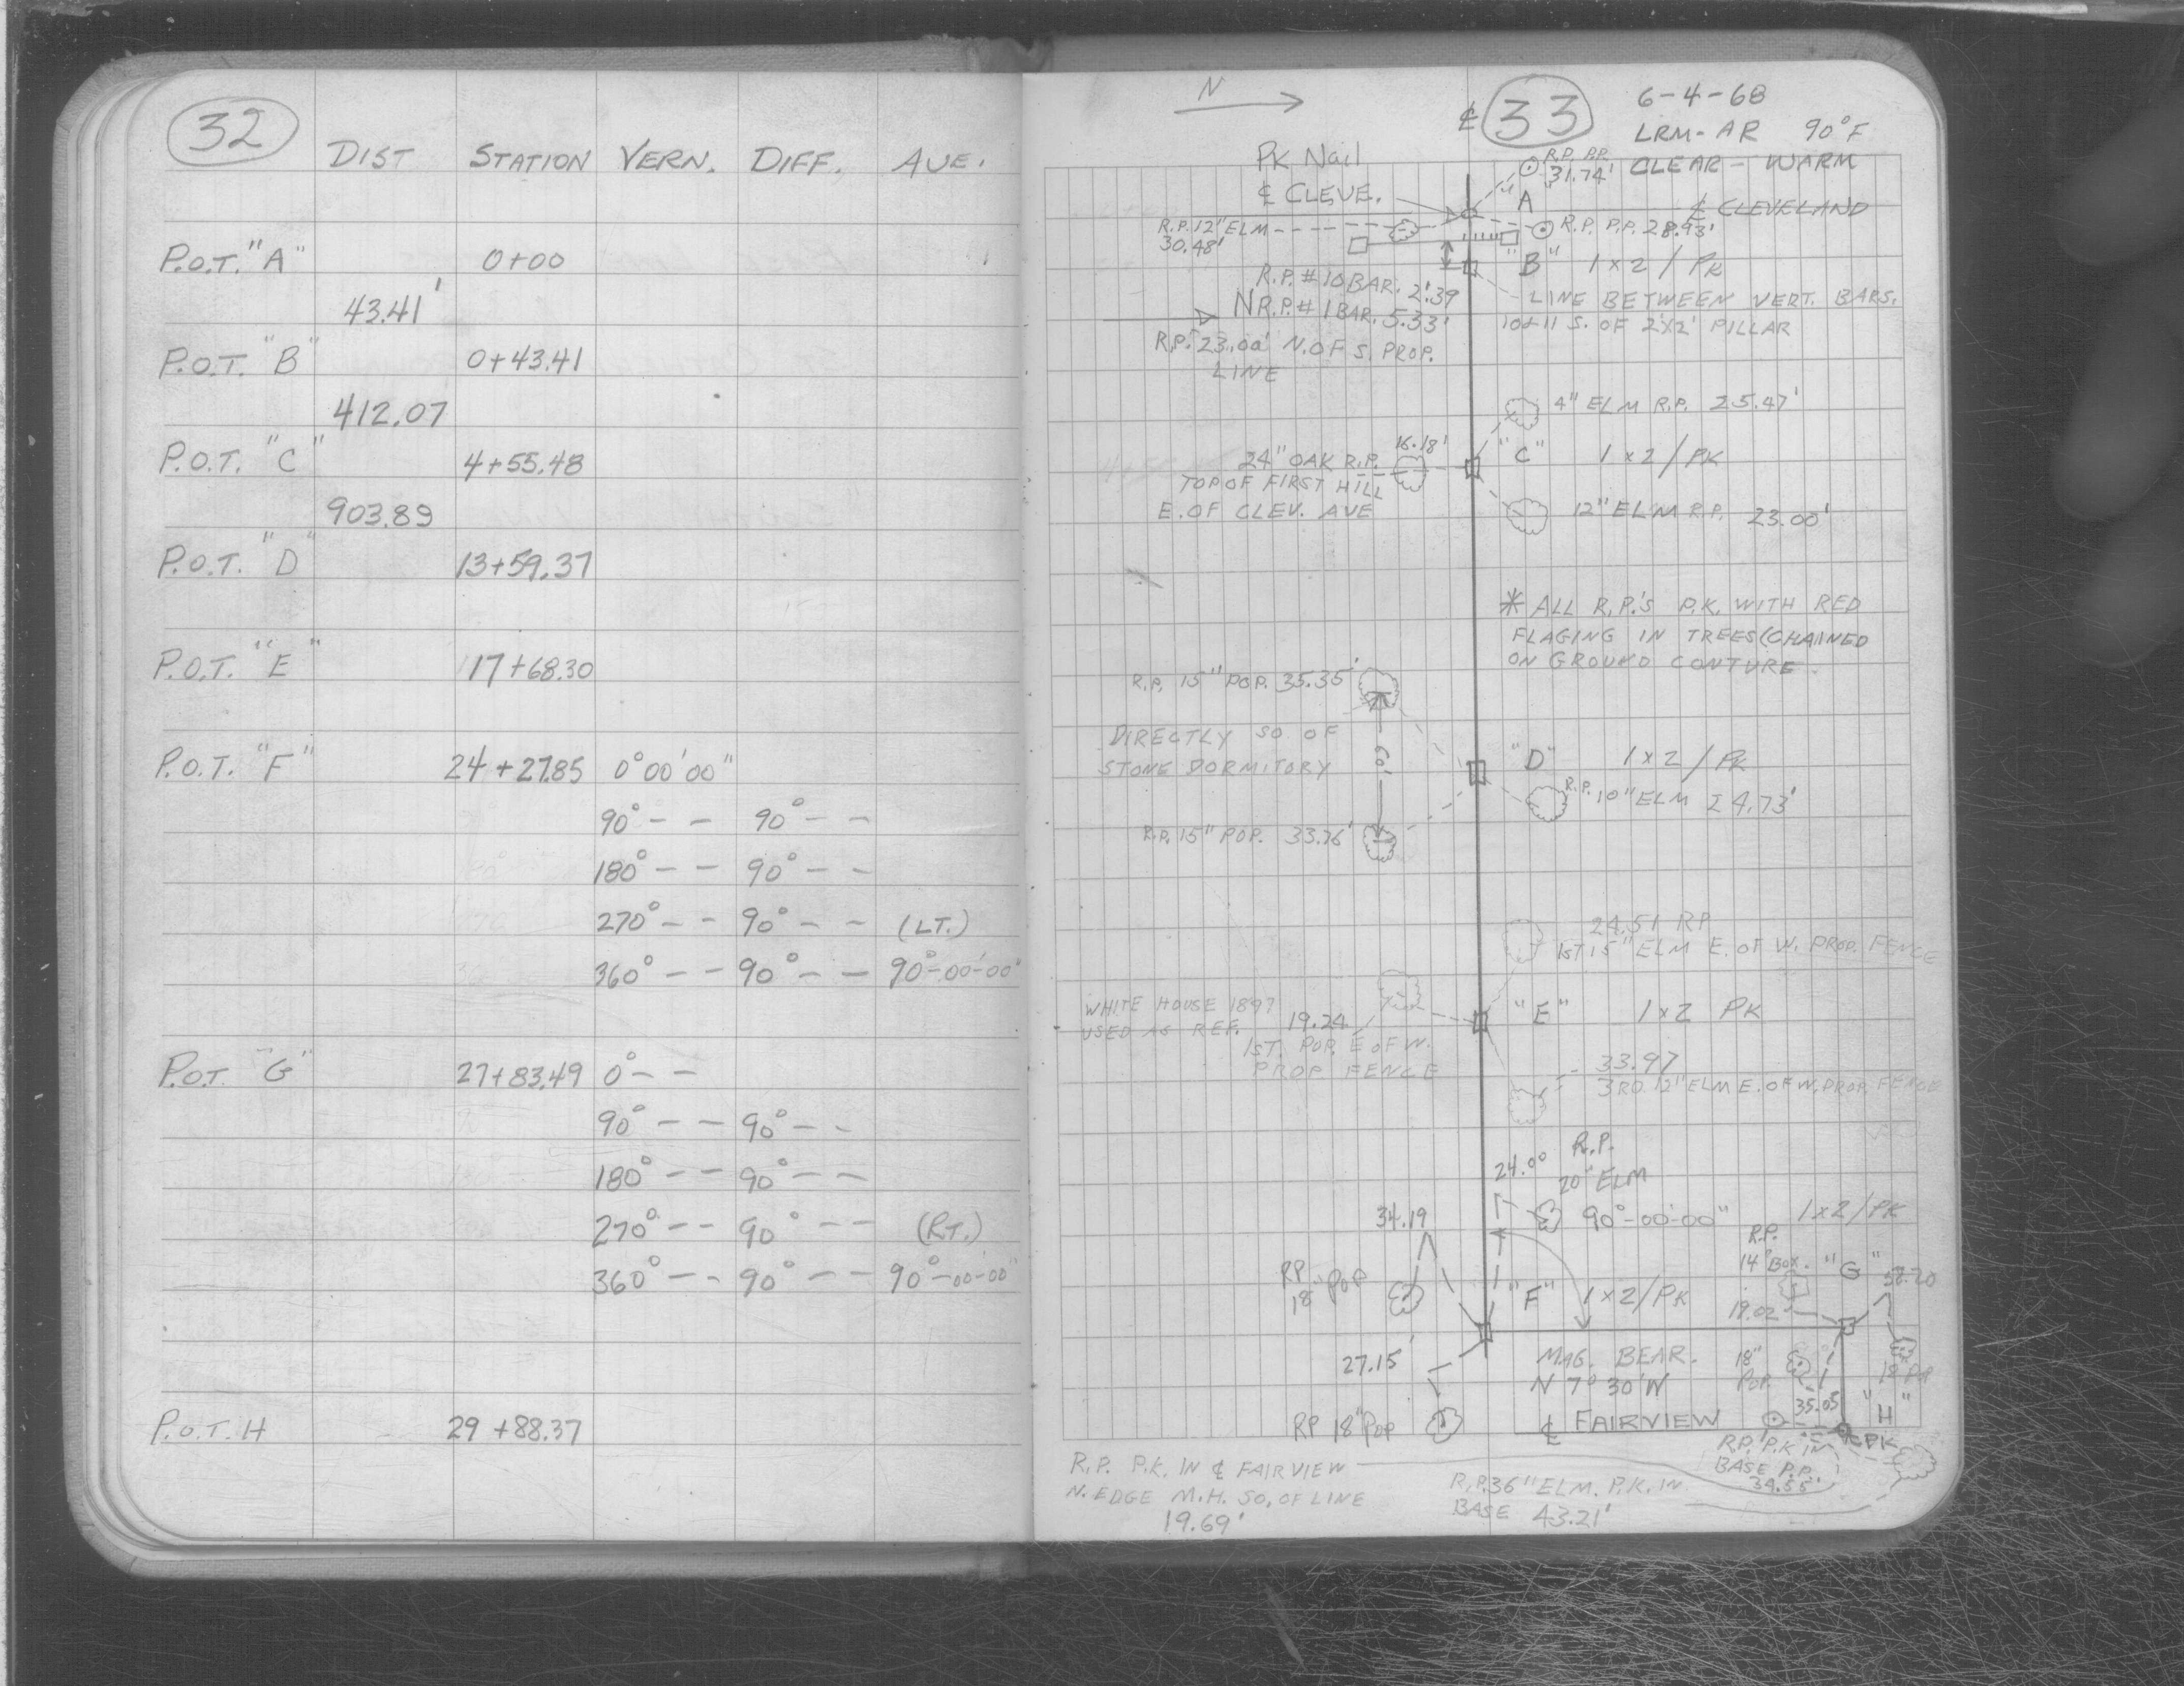 32
DIST STATION VERN. DIFF. AVE.
P.O.T. "A" 0+00
43.41'
P.O.T. "B" 0+43.41
412.07
P.O.T. "C" 4+55.48
903.89
P.O.T. "D" 13+59.37
P.O.T. "E" 17+68.30
P.O.T. "F" 24+27.85 0°00'00"
90° - - 90° - -
180° - - 90° - -
270° - - 90° - - (LT.)
360° - - 90° - - 90°-00'-00"
P.O.T. "G" 27+83.49 0° - -
90° - - 90° - -
180° - - 90° - -
270° - - 90° - - (RT.)
360° - - 90° - - 90°-00'-00"
P.O.T. H 29+88.37
N
℄ 33
6-4-68
LRM-AR 90°F
CLEAR - WARM
PK Nail
℄ CLEVE.
R.P. P.P.
31.74'
"A"
℄ CLEVELAND
R.P. 12" ELM
30.48'
R.P. P.P. 28.93'
"B" 1x2/PK
R.P. #10 BAR. 2.39'
N R.P. #1 BAR. 5.33'
LINE BETWEEN VERT. BARS.
10&11 S. OF 2'x2' PILLAR
R.P. 23.00' N. OF S. PROP.
LINE
4" ELM R.P. 25.47'
16.18'
24" OAK R.P.
TOP OF FIRST HILL
E. OF CLEV. AVE
"C" 1x2/PK
12" ELM R.P. 23.00'
* ALL R.P.'S P.K. WITH RED
FLAGING IN TREES (CHAINED
ON GROUND CONTURE.
R.P. 15" POP. 35.35'
DIRECTLY SO. OF
STONE DORMITORY
60'
"D" 1x2/PK
R.P. 10" ELM 24.73'
R.P. 15" POP. 33.76'
24.51 RP
1ST 15" ELM E. OF W. PROP. FENCE
WHITE HOUSE 1897
USED AS REF.
19.24
1ST. POP. E OF W.
PROP FENCE
"E" 1x2 PK
33.97
3RD. 12" ELM E. OF W. PROP. FENCE
24.00 R.P.
20" ELM
34.19
90°-00'-00"
1x2/PK
R.P.
14" BOX. "G"
RP
18" POP
"F" 1x2/PK
19.02
27.15'
MAG. BEAR.
N 7° 30' W
18"
POP.
18" POP
35.05
"H"
RP 18" POP
℄ FAIRVIEW
PK
R.P. P.K. IN
BASE P.P.
34.55'
R.P. P.K. IN ℄ FAIRVIEW
N. EDGE M.H. SO. OF LINE
19.69'
R.P. 36" ELM. P.K. IN
BASE 43.21'